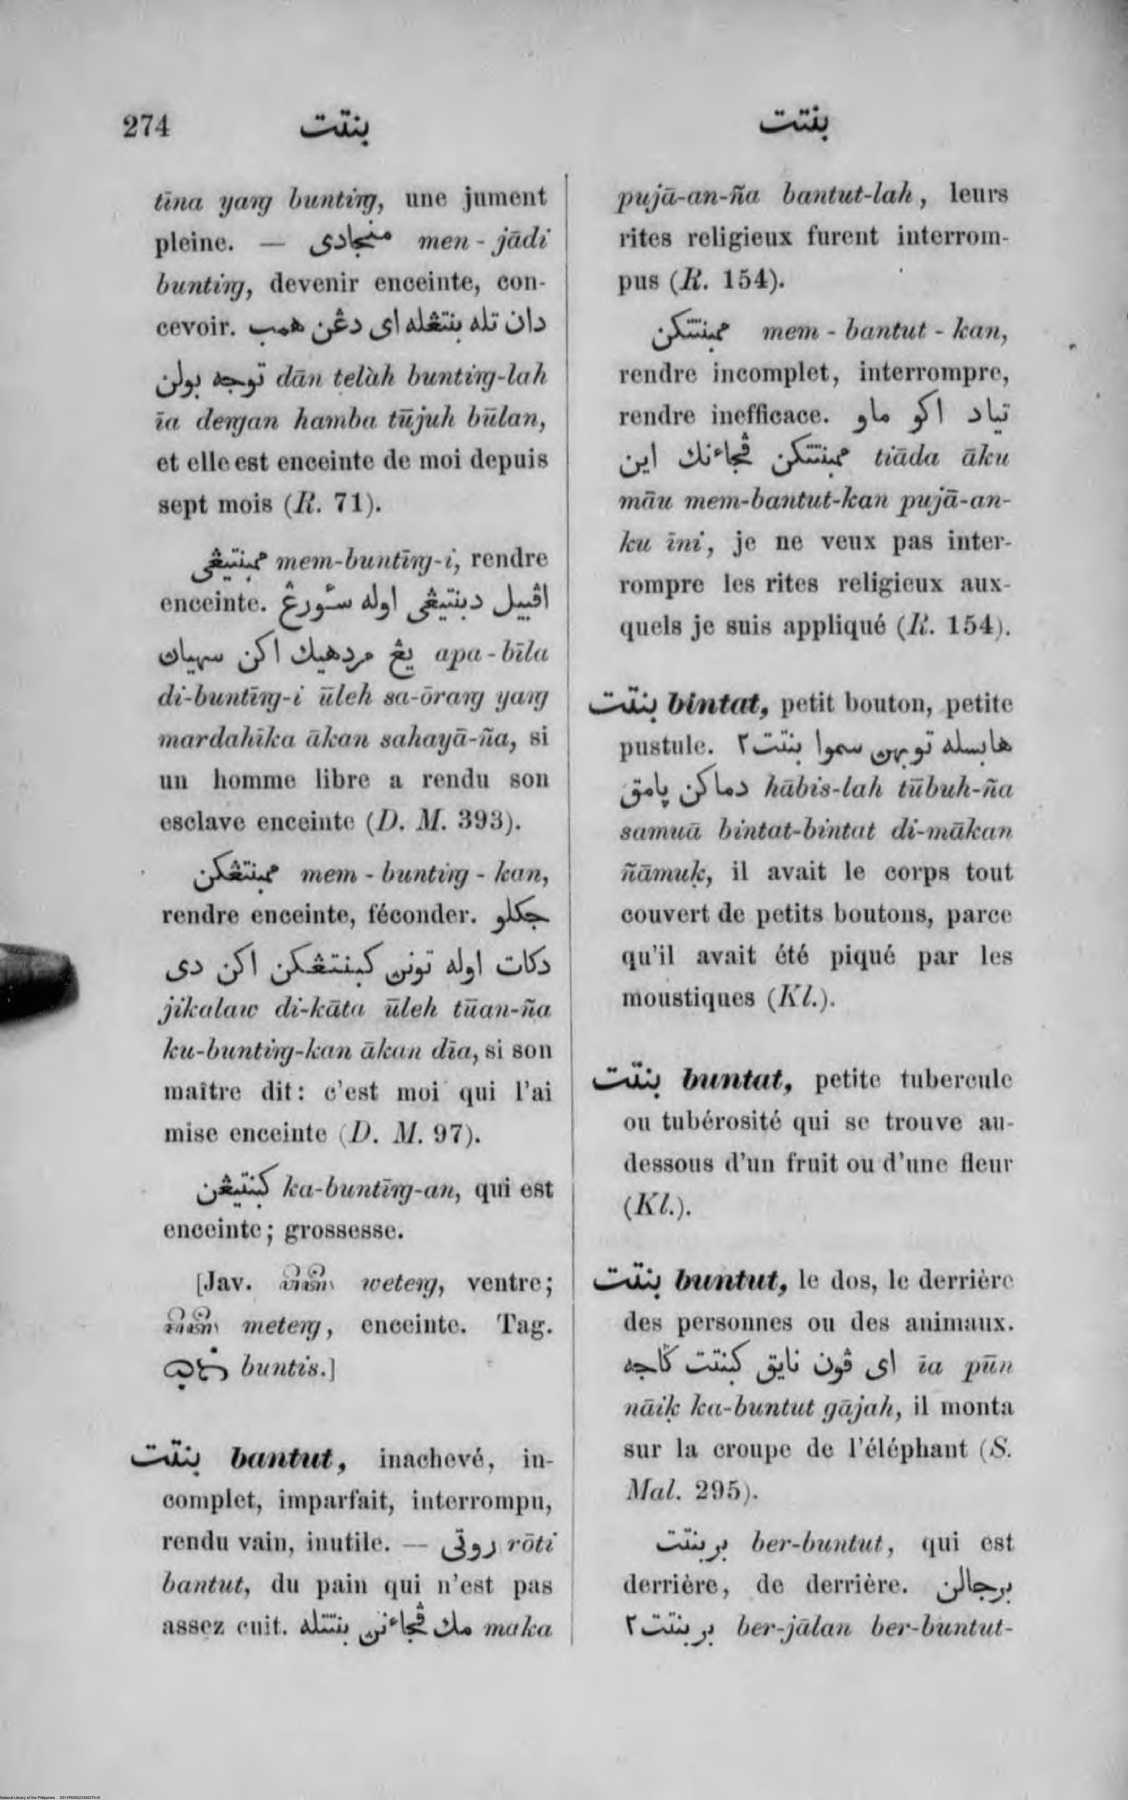 274 بنتت بنتت
tīna yaṅg buntiṅg, une jument
pleine. — منجادى men-jādi
buntiṅg, devenir enceinte, con-
cevoir. دان تله بنتڠله اى دڠن همب
توجه بولن dān telàh buntiṅg-lah
īa deṅgan hamba tūjuh būlan,
et elle est enceinte de moi depuis
sept mois (R. 71).
ممبنتيڠى mem-buntīṅg-i, rendre
enceinte. اڤبيل دبنتيڠى اوله سـٔورڠ
يڠ مردهيك اكن سهيان apa-bīla
di-buntīṅg-i ūleh sa-ōraṅg yaṅg
mardahīka ākan sahayā-ña, si
un homme libre a rendu son
esclave enceinte (D. M. 393).
ممبنتڠكن mem-buntiṅg-kan,
rendre enceinte, féconder. جكلو
دكات اوله تونن كبنتڠكن اكن دى
jikalaw di-kāta ūleh tūan-ña
ku-buntiṅg-kan ākan dīa, si son
maître dit: c'est moi qui l'ai
mise enceinte (D. M. 97).
كبنتيڠن ka-buntīṅg-an, qui est
enceinte; grossesse.
[Jav. weteṅg, ventre;
meteṅg, enceinte. Tag.
buntis.]
بنتت bantut, inachevé, in-
complet, imparfait, interrompu,
rendu vain, inutile. — روتى rōti
bantut, du pain qui n'est pas
assez cuit. مك ڤجاءنن بنتتله maka
pujā-an-ña bantut-lah, leurs
rites religieux furent interrom-
pus (R. 154).
ممبنتتكن mem-bantut-kan,
rendre incomplet, interrompre,
rendre inefficace. تياد اكو ماو
ممبنتتكن ڤجاءنك اين tiāda āku
māu mem-bantut-kan pujā-an-
ku īni, je ne veux pas inter-
rompre les rites religieux aux-
quels je suis appliqué (R. 154).
بنتت bintat, petit bouton, petite
pustule. هابسله توبهن سموا بنتت٢
دماكن پامق hābis-lah tūbuh-ña
samuā bintat-bintat di-mākan
ñāmuḳ, il avait le corps tout
couvert de petits boutons, parce
qu'il avait été piqué par les
moustiques (Kl.).
بنتت buntat, petite tubercule
ou tubérosité qui se trouve au-
dessous d'un fruit ou d'une fleur
(Kl.).
بنتت buntut, le dos, le derrière
des personnes ou des animaux.
اى ڤون نايق كبنتت ڬاجه īa pūn
nāiḳ ka-buntut gājah, il monta
sur la croupe de l'éléphant (S.
Mal. 295).
بربنتت ber-buntut, qui est
derrière, de derrière. برجالن
بربنتت٢ ber-jālan ber-buntut-